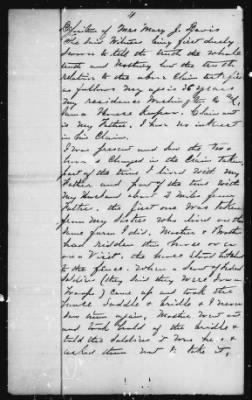 4
of Mrs Mary J. Davis
The said Witness being first duly
sworn to tell the truth the whole
truth and Nothing but the truth
relative to the above Claim testifies
as follows My age is 36 years
my residence Washington
I am a House Keeper. Claimant
is my Father. I have no interest
in his Claim.
I was present and saw the two
horses Charged in the Claim taken,
part of the time I lived with my
Father and part of the time with
my Husband about 3 miles from
Father. the first one was taken
from my Sister who lived on the
same farm I did. Mother &
had ridden the horse over
on a Visit. the horse stood hitched
to the fence. When a Squad of
Soldiers (they said they were
Troops) came up and took the
horse Saddle & bridle & I never
saw them again. Mother went out
and took hold of the bridle &
told the Soldiers it was hers &
asked them not to take it,